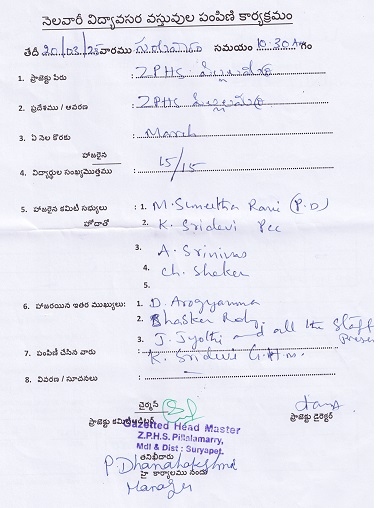 నెలవారీ విద్యావసర వస్తువుల పంపిణి కార్యక్రమం
తేదీ 30/03/25 వారము సమయం 10.30Am గం
1. ప్రాజెక్టు పేరు : ZPHS పిల్లలమర్రి
2. ప్రదేశము / ఆవరణ : ZPHS పిల్లలమర్రి
3. ఏ నెల కొరకు : March
హాజరైన
4. విద్యార్థుల సంఖ్యమొత్తము : 15/15
5. హాజరైన కమిటి సభ్యులు : 1. M. Suneetha Rani (P.D)
హోదాతో 2. K. Sridevi
3. A. Srinivas
4. Ch. Shaker
5.
6. హాజరయిన ఇతర ముఖ్యులు: 1. D. Arogyamma
2. Bhasker Reddy
3. J. Jyothi and all the Staff Present
7. పంపిణి చేసిన వారు : K. Sridevi G.H.M.
8. వివరణ / సూచనలు :
చైర్మన్
ప్రాజెక్టు కమిటి ప్రాజెక్టు డైరెక్టర్
Gazetted Head Master
Z.P.H.S. Pillalamarry,
Mdl & Dist : Suryapet.
తనిఖీదారు
P. Dhanalakshmi
హై కార్యాలయము నందు
Manager